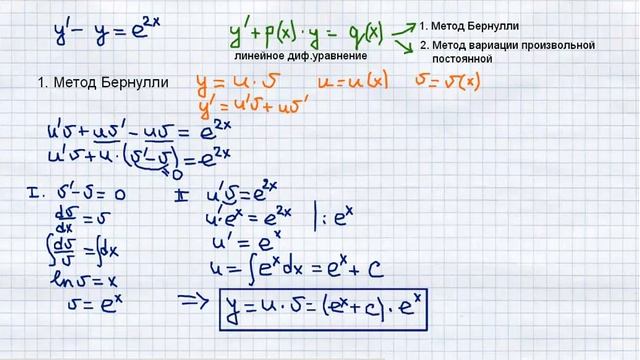 y' - y = e^{2x}
y' + p(x)·y = q(x)
линейное диф.уравнение
1. Метод Бернулли
2. Метод вариации произвольной
постоянной
1. Метод Бернулли
y = u·v   u = u(x)   v = v(x)
y' = u'v + uv'
u'v + uv' - uv = e^{2x}
u'v + u·(v' - v) = e^{2x}
=0
I. v' - v = 0
dv/dx = v
∫ dv/v = ∫ dx
ln v = x
v = e^x
II u'v = e^{2x}
u'·e^x = e^{2x} | : e^x
u' = e^x
u = ∫ e^x dx = e^x + c
⇒ y = u·v = (e^x + c)·e^x